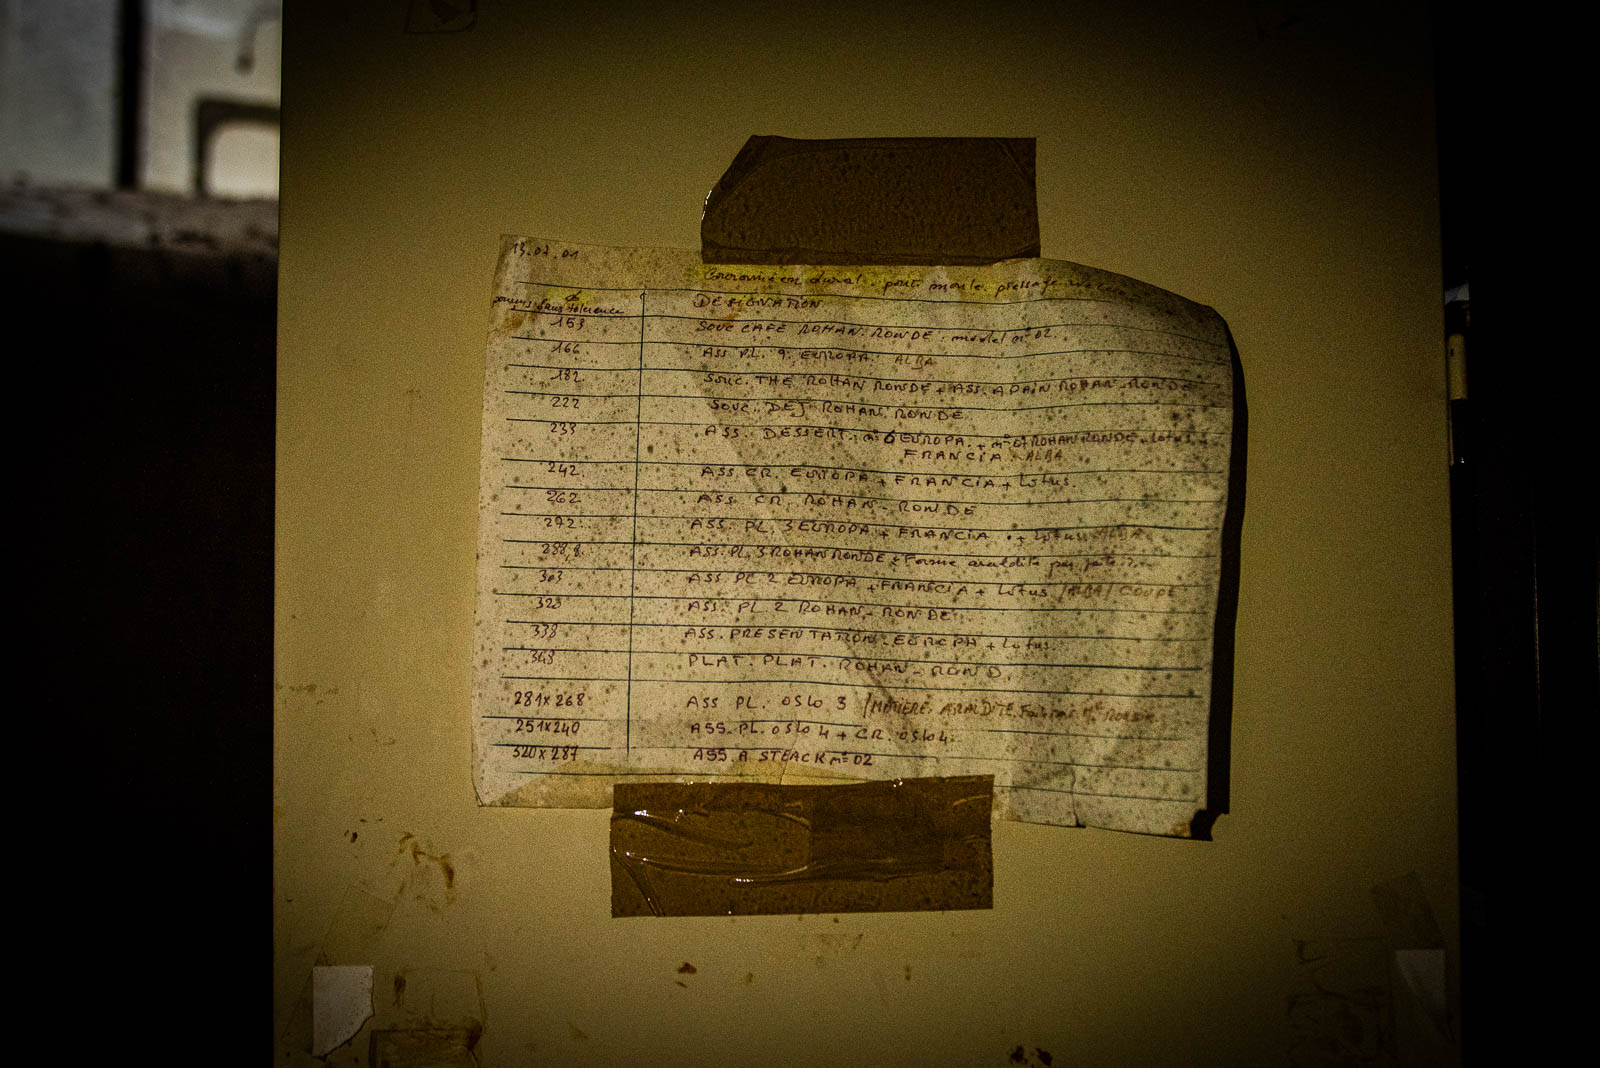 13.07.01
pour moule pressage
Ø DESIGNATION
sans tolérence
153 SOUC CAFE ROHAN. RONDE. model n° 02.
166 ASS. PL. 9. EUROPA. ALBA
182 SOUC. THE ROHAN RONDE + ASS. A PAIN ROHAN-RONDE
222 SOUC. DEJ ROHAN. RONDE
233 ASS. DESSERT. n° 6 EUROPA. + ROHAN RONDE. Lotus
FRANCIA. ALBA
242 ASS. CR EUROPA + FRANCIA + Lotus.
262 ASS. CR. ROHAN - RONDE
272 ASS. PL. 3 EUROPA + FRANCIA + Lotus ALBA
288,8 ASS. PL. 3 ROHAN RONDE + Forme araldite
303 ASS PL 2 EUROPA + FRANCIA + Lotus /ALBA/ COUPE
320 ASS. PL. 2 ROHAN - RONDE
338 ASS. PRESENTATION. EUROPA + Lotus.
348 PLAT. PLAT. ROHAN - ROND.
281x268 ASS PL. OSLO 3 / ARALDITE
251x240 ASS. PL. OSLO 4 + CR. OSLO 4.
320x287 ASS. A STEACK n° 02